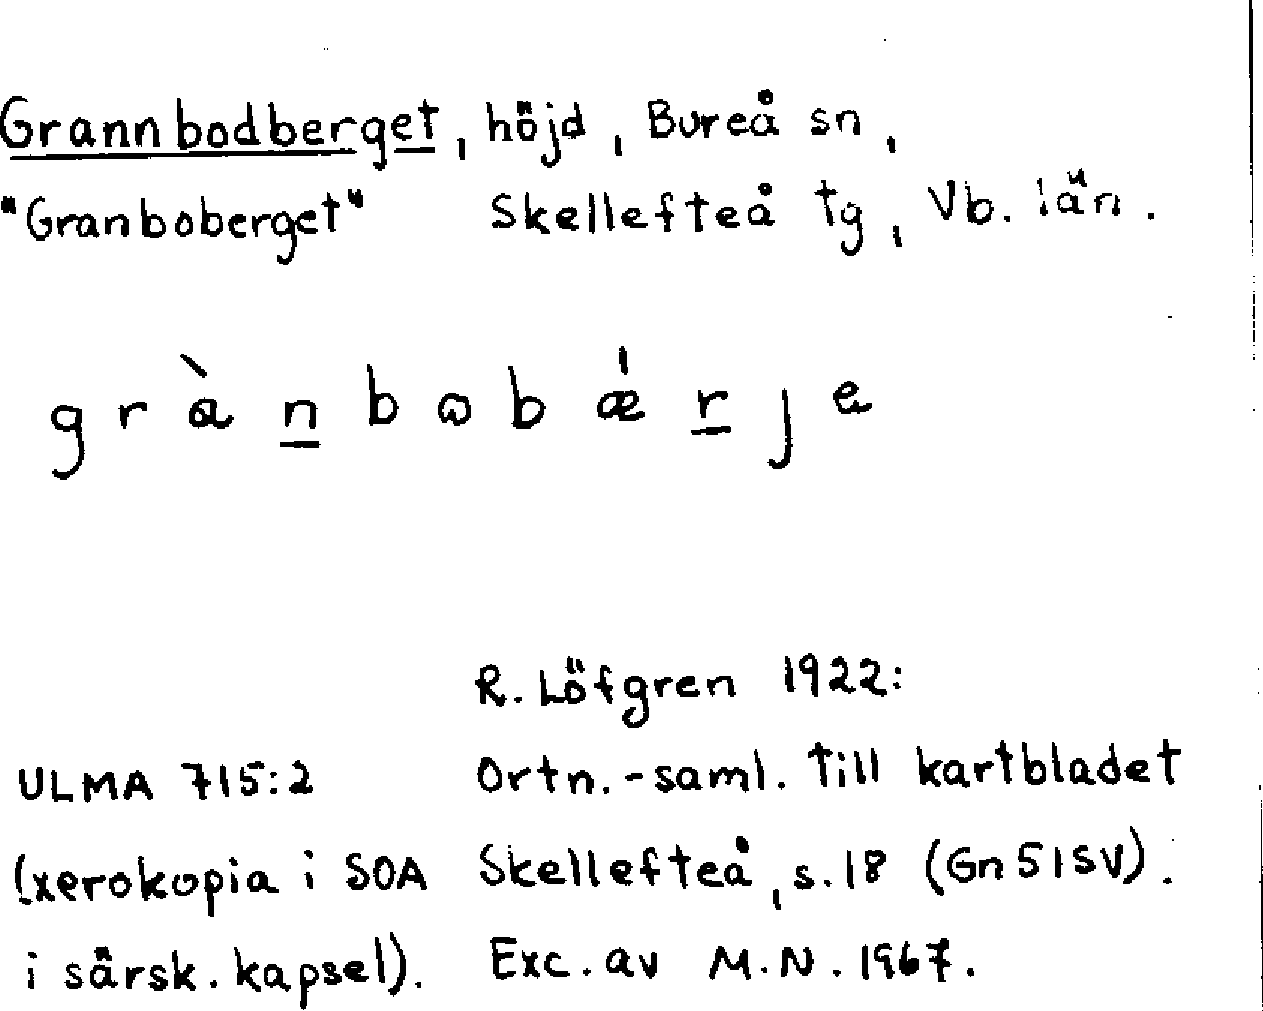 Grannbodberget, höjd, Bureå sn,
"Granboberget" Skellefteå tg, Vb. län.
gràn̲bobǽr̲je
R. Löfgren 1922:
ULMA 715:2 Ortn.-saml. till kartbladet
(xerokopia i SOA Skellefteå, s.18 (Gn51SV).
i särsk. kapsel). Exc. av M.N. 1967.